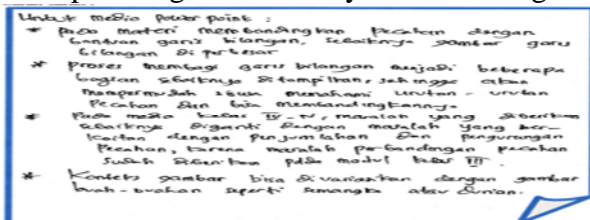 Untuk media power point :
* Pada materi membandingkan pecahan dengan
bantuan garis bilangan, sebaiknya gambar garis
bilangan di perbesar
* Proses membagi garis bilangan menjadi beberapa
bagian sebaiknya ditampilkan, sehingga akan
mempermudah siswa memahami urutan - urutan
Pecahan dan bisa membandingkannya.
* Pada media kelas IV - V, masalah yang diberikan
sebaiknya diganti dengan masalah yang ber-
kaitan dengan penjumlahan dan pengurangan
Pecahan, karena masalah perbandingan pecahan
sudah diberikan pada modul kelas III.
* Konteks gambar bisa divariasikan dengan gambar
buah-buahan seperti semangka atau durian.